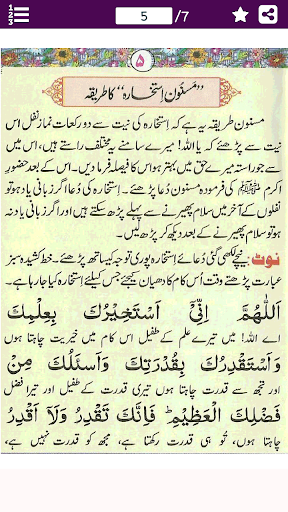 1
2
3
5 /7
۵
”مَسنُون اِستخارہ“ کا طریقہ
مسنون طریقہ یہ ہے کہ اِستخارہ کی نیت سے دو رکعات نمازِ نفل اس
نیت سے پڑھئے کہ یااللہ! میرے سامنے یہ مختلف راستے ہیں، اس میں
سے جو راستہ میرے حق میں بہتر ہو اس کا فیصلہ فرما دیں۔ اس کے بعد حضور
اکرم ﷺ کی فرمودہ مسنون دُعا پڑھئے۔ اِستخارہ کی دُعا اگر زبانی یاد ہو تو
نفلوں کے آخر میں سلام پھیرنے سے پہلے پڑھ سکتے ہیں اور اگر زبانی یاد نہ
ہو تو سلام پھیرنے کے بعد دیکھ کر پڑھ لیں۔
نوٹ نیچے لکھی گئی دُعائے اِستخارہ پوری توجہ کیساتھ پڑھئے۔ خط کشیدہ سبز
عبارت پڑھتے وقت اُس کام کا دھیان کیجئے جس کیلئے اِستخارہ کیا جا رہا ہے۔
اَللّٰهُمَّ اِنِّیْٓ اَسْتَخِيْرُكَ بِعِلْمِكَ
اے اللہ! میں تیرے علم کے طفیل اس کام میں خیریت چاہتا ہوں
وَاَسْتَقْدِرُكَ بِقُدْرَتِكَ وَاَسْئَلُكَ مِنْ
اور تجھ سے قدرت چاہتا ہوں تیری قدرت کے طفیل اور تیرا فضل
فَضْلِكَ الْعَظِيْمِ ؕ فَاِنَّكَ تَقْدِرُ وَلَآ اَقْدِرُ
چاہتا ہوں، تُو ہی قدرت رکھتا ہے، مجھ کو قدرت نہیں ہے،